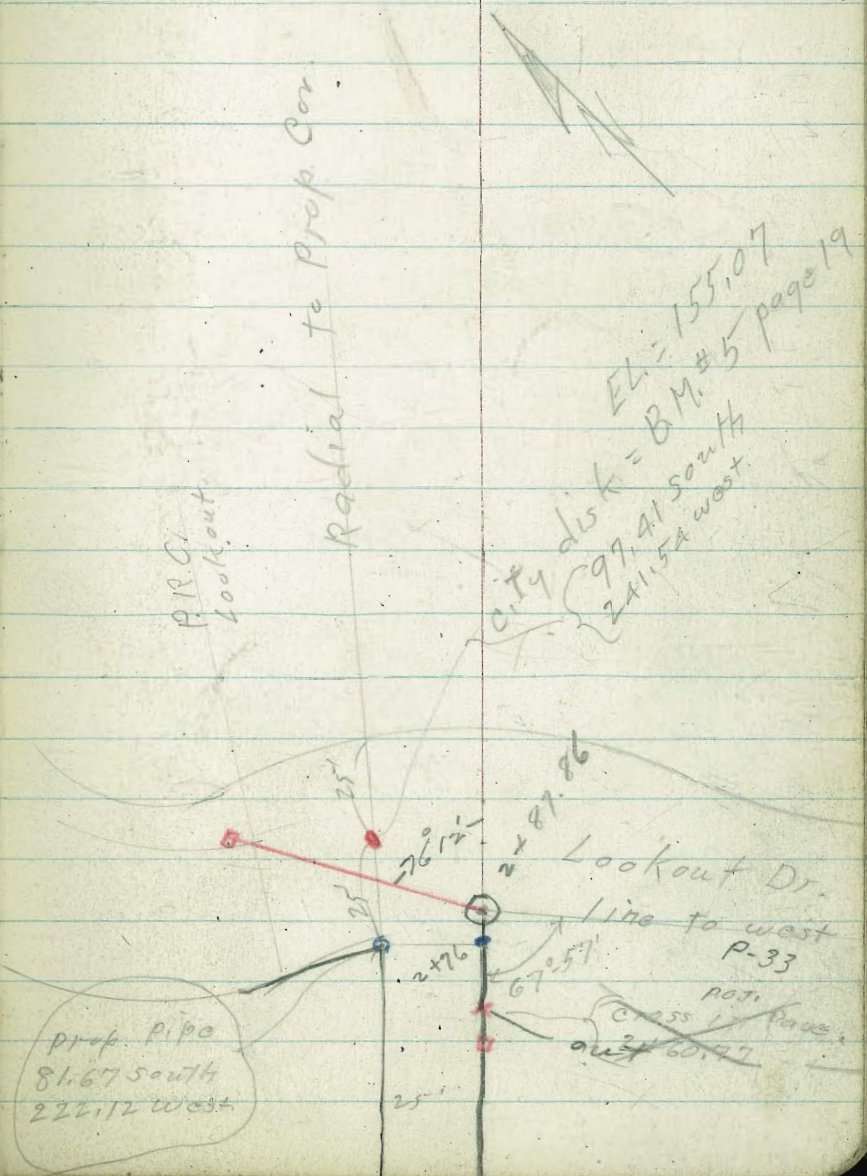 N
Radial to Prop. Cor.
EL. = 155.07
City disk = B.M. # 5 page 19
97.41 south
241.54 west.
P.R.C.
Lookout
25'
76° 12'
2+87.86
Lookout Dr.
25'
line to west
P-33
2+76
67°-57'
P.O.T.
cross in Pave.
2+60.77
out
prop. pipe
81.67 south
222.12 west
25'